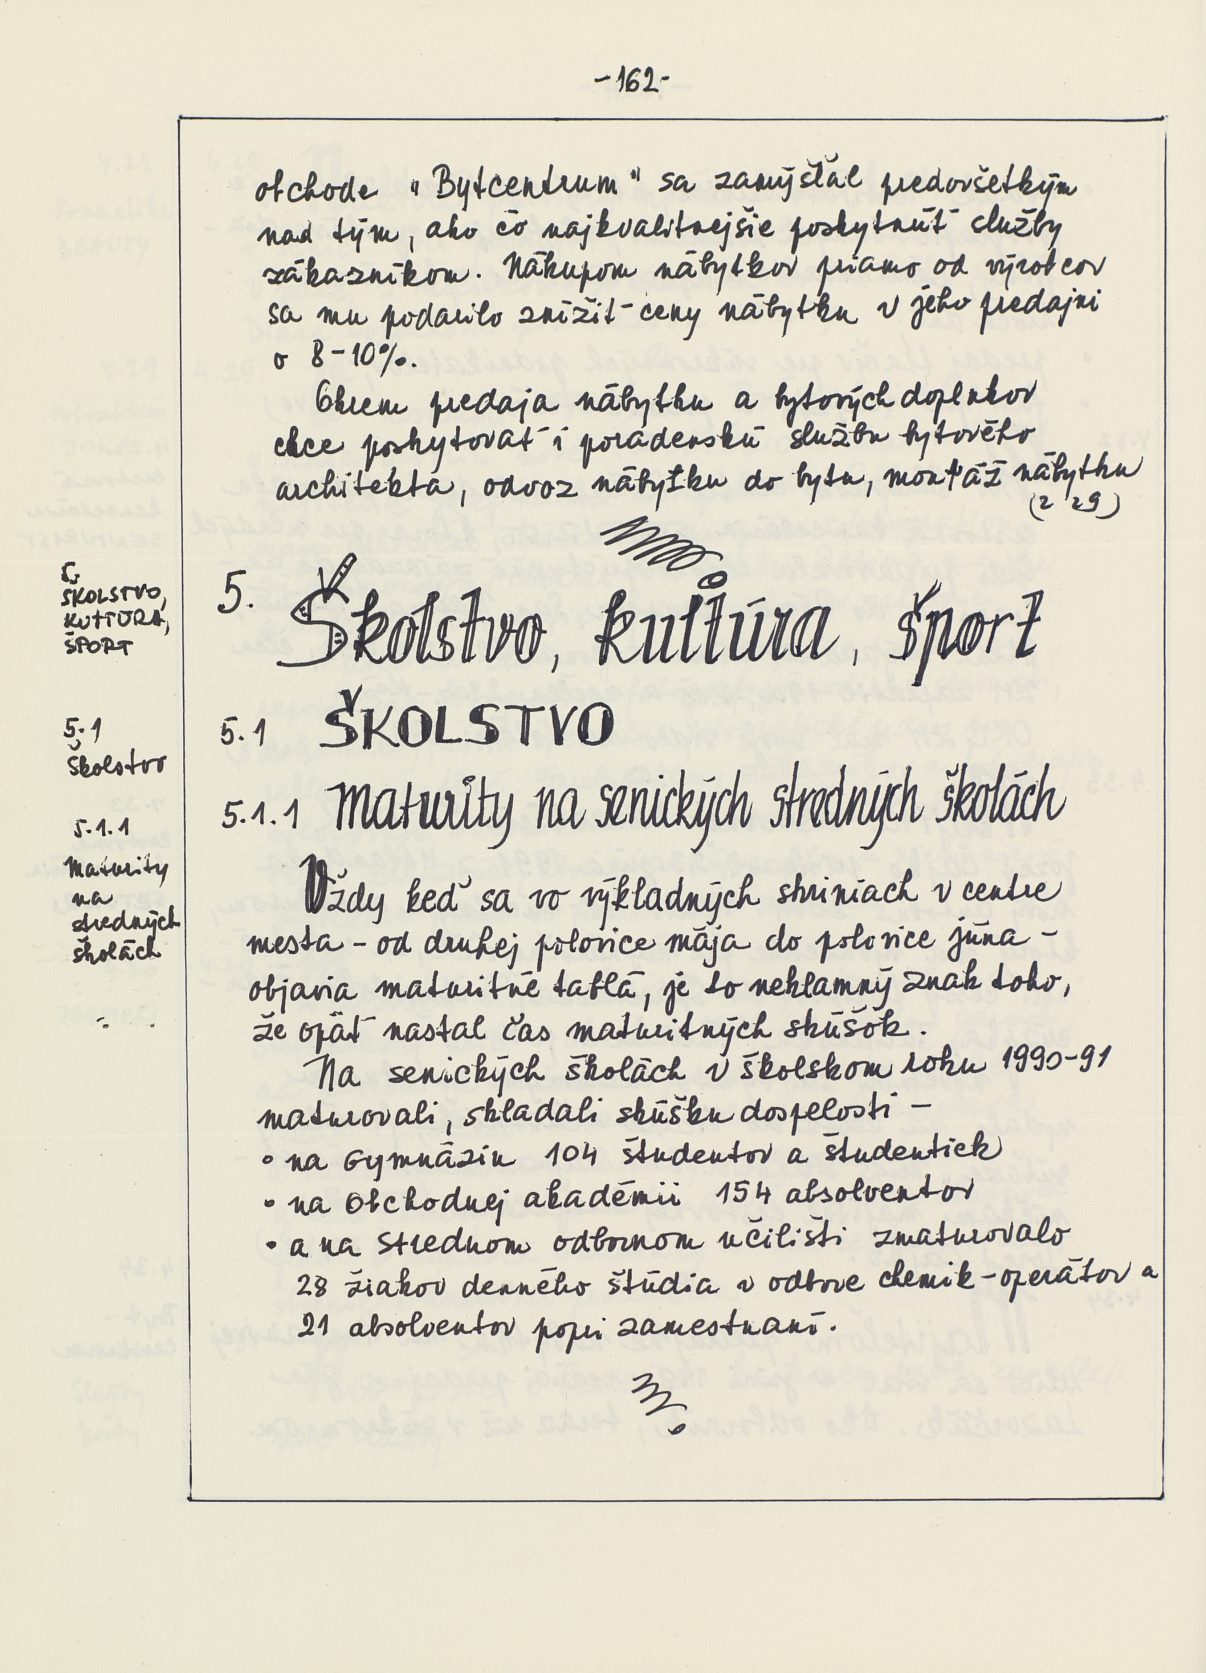 -162-
obchode "Bytcentrum" sa zamýšľal predovšetkým
nad tým, ako čo najkvalitnejšie poskytnúť služby
zákazníkom. Nákupom nábytkov priamo od výrobcov
sa mu podarilo znížiť ceny nábytku v jeho predajni
o 8-10%.
Okrem predaja nábytku a bytových doplnkov
chce poskytovať i poradenskú službu bytového
architekta, odvoz nábytku do bytu, montáž nábytku
(2 29)
5.
ŠKOLSTVO,
KULTÚRA,
ŠPORT
5. Školstvo, kultúra, šport
5.1
Školstvo
5.1 ŠKOLSTVO
5.1.1
Maturity
na
stredných
školách
5.1.1 Maturity na senických stredných školách
Vždy keď sa vo výkladných skriniach v centre
mesta - od druhej polovice mája do polovice júna -
objavia maturitné tablá, je to neklamný znak toho,
že opäť nastal čas maturitných skúšok.
Na senických školách v školskom roku 1990-91
maturovali, skladali skúšku dospelosti -
• na Gymnáziu 104 študentov a študentiek
• na Obchodnej akadémii 154 absolventov
• a na Strednom odbornom učilišti zmaturovalo
28 žiakov denného štúdia v odbore chemik-operátor a
21 absolventov popri zamestnaní.